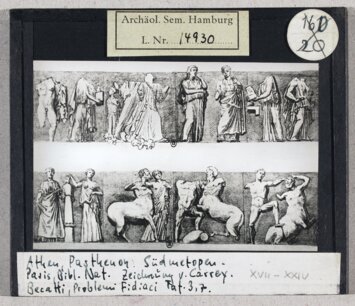 Archäol. Sem. Hamburg
L. Nr. 14930
Athen, Parthenon. Südmetopen.
Paris, Bibl. Nat. Zeichnung v. Carrey.
XVII - XXIV
Becatti, Problemi Fidiaci Taf. 3,7.